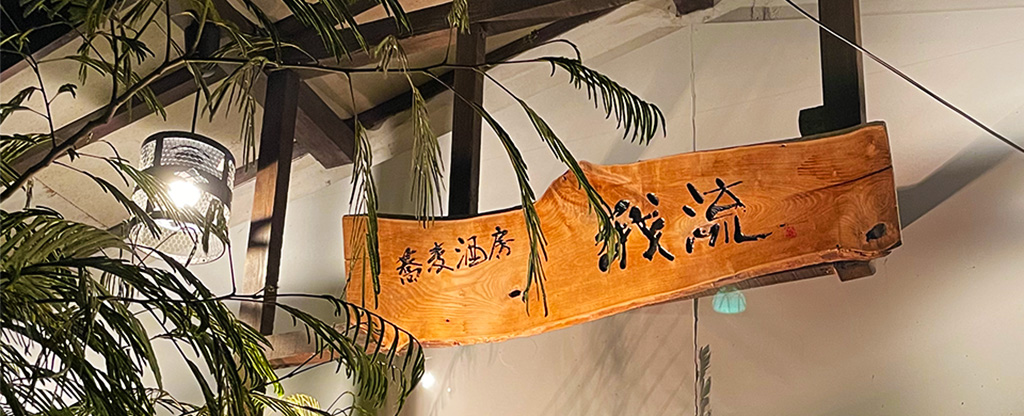 蕎麦酒房 我流